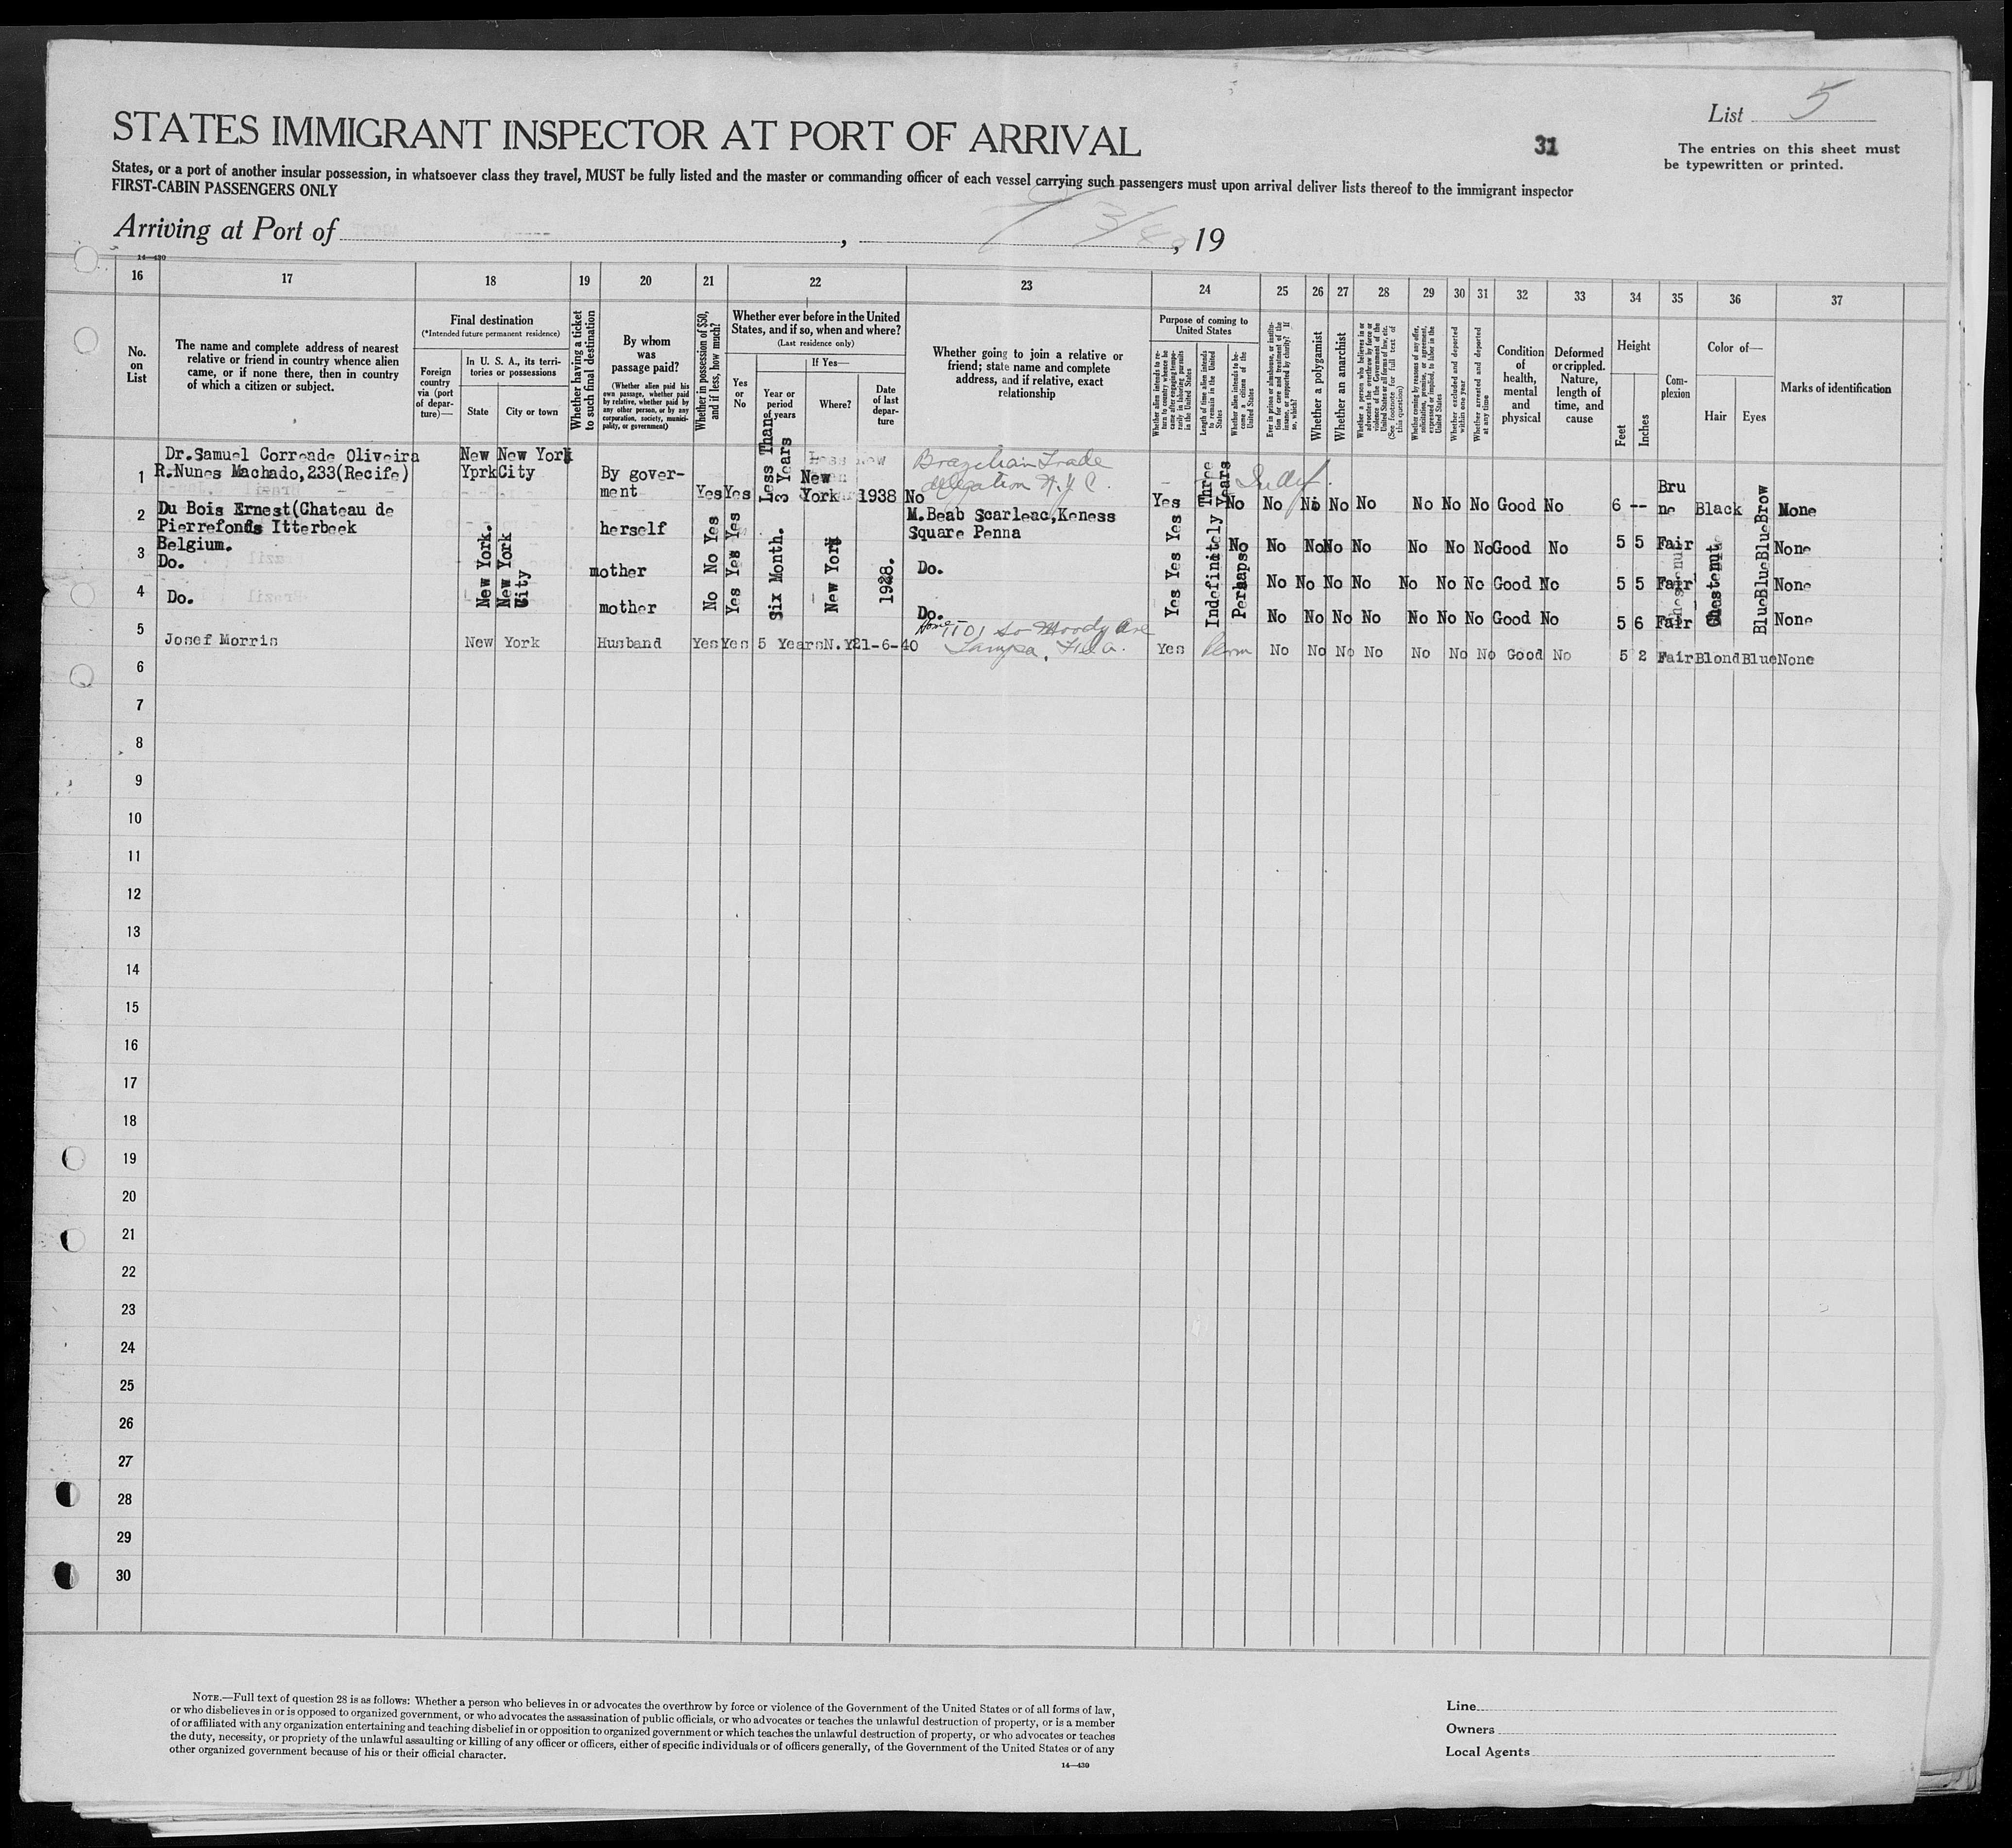 List 5
STATES IMMIGRANT INSPECTOR AT PORT OF ARRIVAL
31
The entries on this sheet must
be typewritten or printed.
States, or a port of another insular possession, in whatsoever class they travel, MUST be fully listed and the master or commanding officer of each vessel carrying such passengers must upon arrival deliver lists thereof to the immigrant inspector
FIRST-CABIN PASSENGERS ONLY
Arriving at Port of , , 19
14—430
16 17 18 19 20 21 22 23 24 25 26 27 28 29 30 31 32 33 34 35 36 37
No.
on
List
The name and complete address of nearest
relative or friend in country whence alien
came, or if none there, then in country
of which a citizen or subject.
Final destination
(*Intended future permanent residence)
Foreign
country
via (port
of depar-
ture)—
In U. S. A., its terri-
tories or possessions
State
City or town
Whether having a ticket
to such final destination
By whom
was
passage paid?
(Whether alien paid his
own passage, whether paid
by relative, whether paid by
any other person, or by any
corporation, society, munici-
pality, or government)
Whether in possession of $50,
and if less, how much?
Whether ever before in the United
States, and if so, when and where?
(Last residence only)
Yes
or
No
If Yes—
Year or
period
of years
Where?
Date
of last
depar-
ture
Whether going to join a relative or
friend; state name and complete
address, and if relative, exact
relationship
Purpose of coming to
United States
Whether alien intends to re-
turn to country whence he
came after engaging tempo-
rarily in laboring pursuits
in the United States
Length of time alien intends
to remain in the United
States
Whether alien intends to be-
come a citizen of the
United States
Ever in prison or almshouse, or institu-
tion for care and treatment of the
insane, or supported by charity? If
so, which?
Whether a polygamist
Whether an anarchist
Whether a person who believes in or
advocates the overthrow by force or
violence of the Government of the
United States or all forms of law, etc.
(See footnote for full text of
this question)
Whether coming by reasons of any offer,
solicitation, promise, or agreement,
expressed or implied, to labor in the
United States
Whether excluded and deported
within one year
Whether arrested and deported
at any time
Condition
of
health,
mental
and
physical
Deformed
or crippled.
Nature,
length of
time, and
cause
Height
Feet
Inches
Com-
plexion
Color of—
Hair
Eyes
Marks of identification
1 Dr.Samuel Correade Oliveira
R.Nunes Machado,233(Recife)
New New York
Yprk City
By gover-
ment
Yes Yes
Less Than
3 Years
New
York
1938
No
Brazilian Trade
delegation N.Y.C.
Yes
Three
Years
Indef.
No No No No No No No No Good No 6 -- Bru
ne Black Brow None
2 Du Bois Ernest(Chateau de
Pierrefonds Itterbeek
Belgium.
New York.
New York
City
herself
Yes Yes
Six Month.
New York
1928.
M.Beab Scarleac,Keness
Square Penna
Yes
Indefinitely
Perhaps
No No No No No No No No Good No 5 5 Fair
Chestenut
Blue None
3 Do. mother No Yes Do. Yes No No No No No No No Good No 5 5 Fair Blue None
4 Do. mother No Yes Do. Yes No No No No No No No Good No 5 6 Fair Blue None
5 Josef Morris New York Husband Yes Yes 5 Years N.Y 21-6-40
Home 1101 So Moody Ave
Tampa, Fla.
Yes Perm No No No No No No No Good No 5 2 Fair Blond Blue None
6
7
8
9
10
11
12
13
14
15
16
17
18
19
20
21
22
23
24
25
26
27
28
29
30
NOTE.—Full text of question 28 is as follows: Whether a person who believes in or advocates the overthrow by force or violence of the Government of the United States or of all forms of law,
or who disbelieves in or is opposed to organized government, or who advocates the assassination of public officials, or who advocates or teaches the unlawful destruction of property, or is a member
of or affiliated with any organization entertaining and teaching disbelief in or opposition to organized government or which teaches the unlawful destruction of property, or who advocates or teaches
the duty, necessity, or propriety of the unlawful assaulting or killing of any officer or officers, either of specific individuals or of officers generally, of the Government of the United States or of any
other organized government because of his or their official character.
14—430
Line
Owners
Local Agents